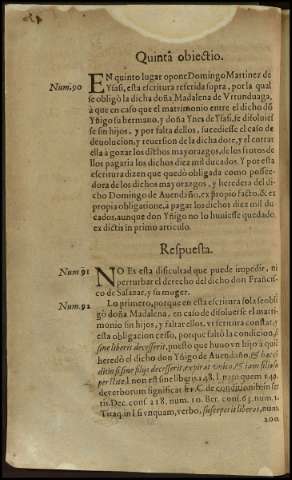 Quinta obiectio.
Num. 90
EN quinto lugar opone Domingo Martinez de
Ysasi, esta escritura referida supra, por la qual
se obligò la dicha doña Madalena de Vrtunduaga,
à que en caso que el matrimonio entre el dicho dõ
Yñigo su hermano, y doña Ynes de Ysasi, se disoluies
se sin hijos, y por falta dellos, sucediesse el caso de
deuolucion, y reuersion de la dicha dote, y el entrar
ella à gozar los dichos mayorazgos, de los frutos de
llos pagaria los dichos diez mil ducados. Y por esta
escritura dizen que quedò obligada como possee-
dora de los dichos mayorazgos, y heredera del di-
cho Domingo de Auendaño, ex proprio facto, & ex
propia obligatione, à pagar los dichos diez mil du-
cados, aunque don Yñigo no lo huuiesse quedado,
ex dictis in primo articulo.
Respuesta.
Num 91
NO Es esta dificultad que puede impedir, ni
perturbar el derecho del dicho don Francis-
co de Salazar, y su muger.
Num. 92
Lo primero, porque en esta escritura sola se obli
gò doña Madalena, en caso de disoluerse el matri-
monio sin hijos, y faltar ellos, vt scritura constat, y
esta obligacion cesso, porque faltò la condicion,
sine liberis decesserit, puesto que huuo vn hijo à quiē
heredò el dicho don Yñigo de Auendaño,
l. non est sine lib. ff. l. 148. l. nam quem 149.
de verborum significat. C. de condition. in ser
tis. Dec. cons. 218. num. 10. Ber. cons. 63. num. 1.
Tiraq. in l. si vnquam, verbo, susceperit liberos, num.
200.